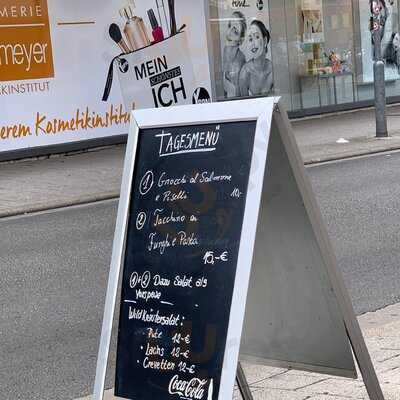 MERIE
meyer
KINSTITUT
MEIN
SCHÖNSTES
ICH
erem Kosmetikinstitut
TAGESMENÜ
① Gnocchi al Salmone
e Piselli 10,-
② Tacchino ai
Funghi e Pasta
15,-€
①+② Dazu Salat als
Vorspeise
Wildkräutersalat:
- Pute 12-€
- Lachs 12-€
- Crevetten 12-€
Coca-Cola